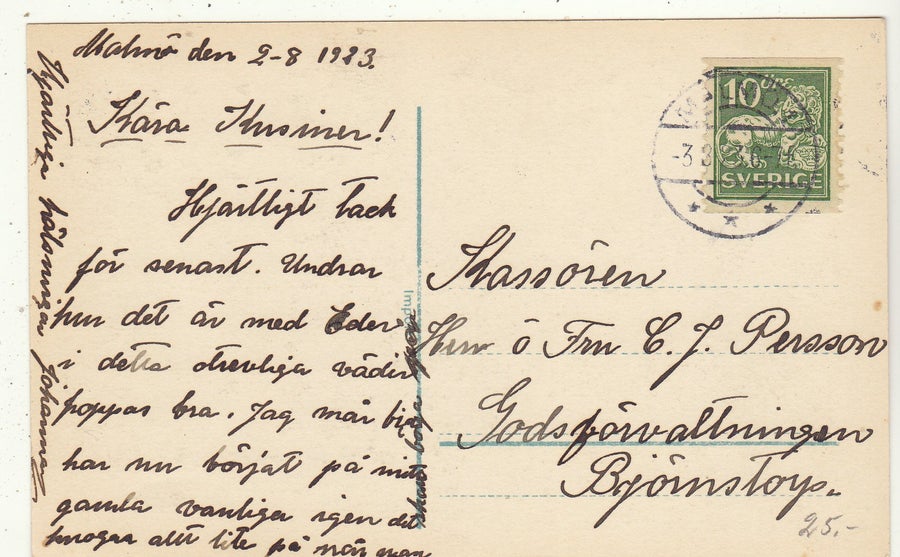 Malmö den 2-8 1923.
Kära Kusiner!
Hjärtligt tack
för senast. Undrar
hur det är med Eder
i detta otrevliga väder
hoppas bra. Jag mår bra
har nu börjat på mitt
gamla vanliga igen det
knogar allt lite på när man
skall börja
Hjärtliga hälsningar Johanna
10 ÖRE
SVERIGE
MALMÖ
Kassören
Herr ö Fru C. J. Persson
Godsförvaltningen
Björnstorp.
25.-